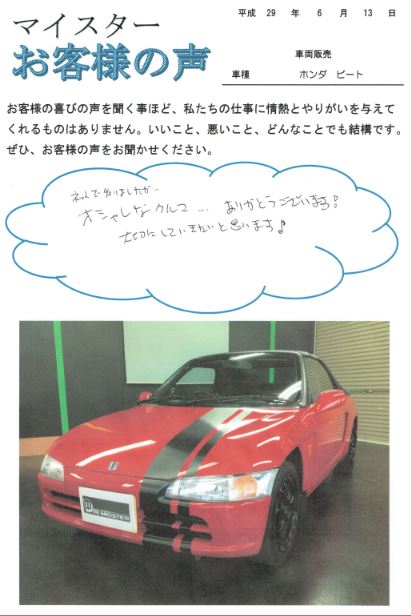 平成 29 年 6 月 13 日
マイスター
お客様の声
車両販売
車種 ホンダ ビート
お客様の喜びの声を聞く事ほど、私たちの仕事に情熱とやりがいを与えて
くれるものはありません。いいこと、悪いこと、どんなことでも結構です。
ぜひ、お客様の声をお聞かせください。
ネットで知りましたが…
オシャレなクルマ… ありがとうございます!
大切にしていきたいと思います♪
MEISTER